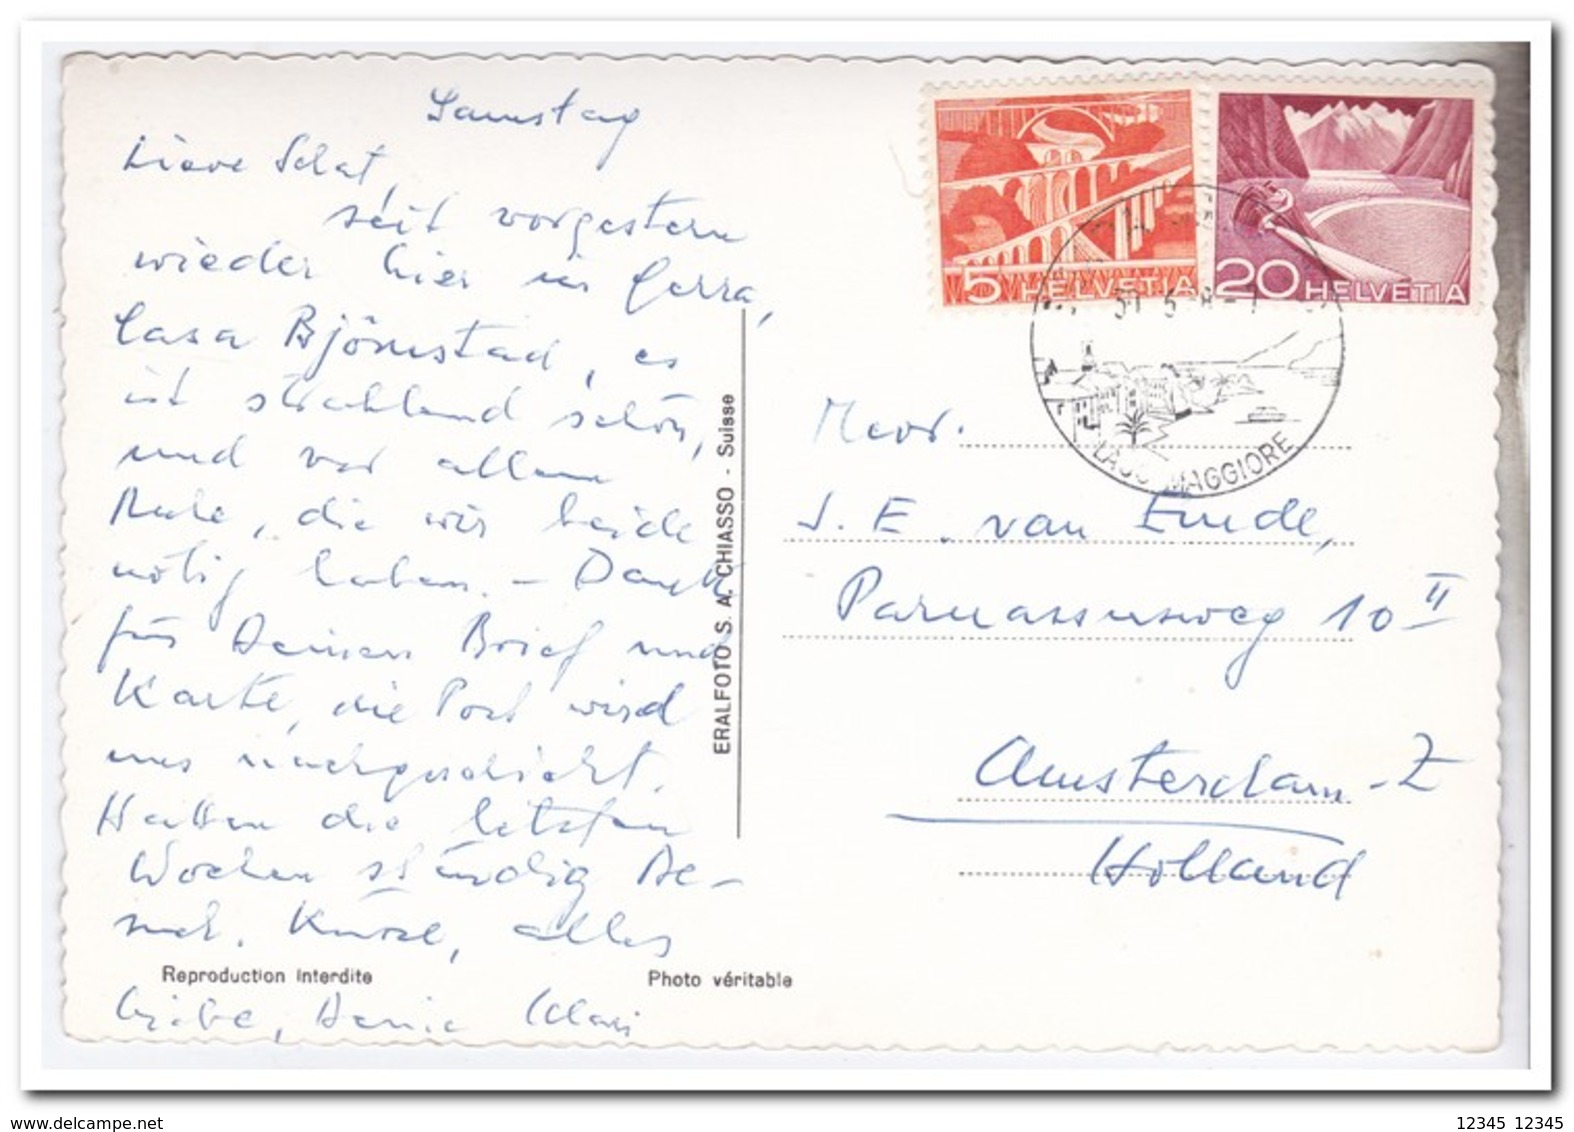 Samstag
Lieve Schat,
seit vorgestern
wieder hier in Gerra,
Casa Björnstad, es
ist strahlend schön,
und vor allem
Ruhe, die wir beide
nötig haben. – Dank
für Deinen Brief und
Karte, die Post wird
uns nachgeschickt.
Hatten die letzten
Wochen ständig Be-
such. Küsse, alles
Liebe, Deine
ERALFOTO S. A. CHIASSO - Suisse
Reproduction interdite
Photo véritable
5 HELVETIA
20 HELVETIA
LAGO MAGGIORE
Mevr.
J. E. van Emde,
Parnassusweg 10 II
Amsterdam-Z
Holland
www.delcampe.net
12345 12345